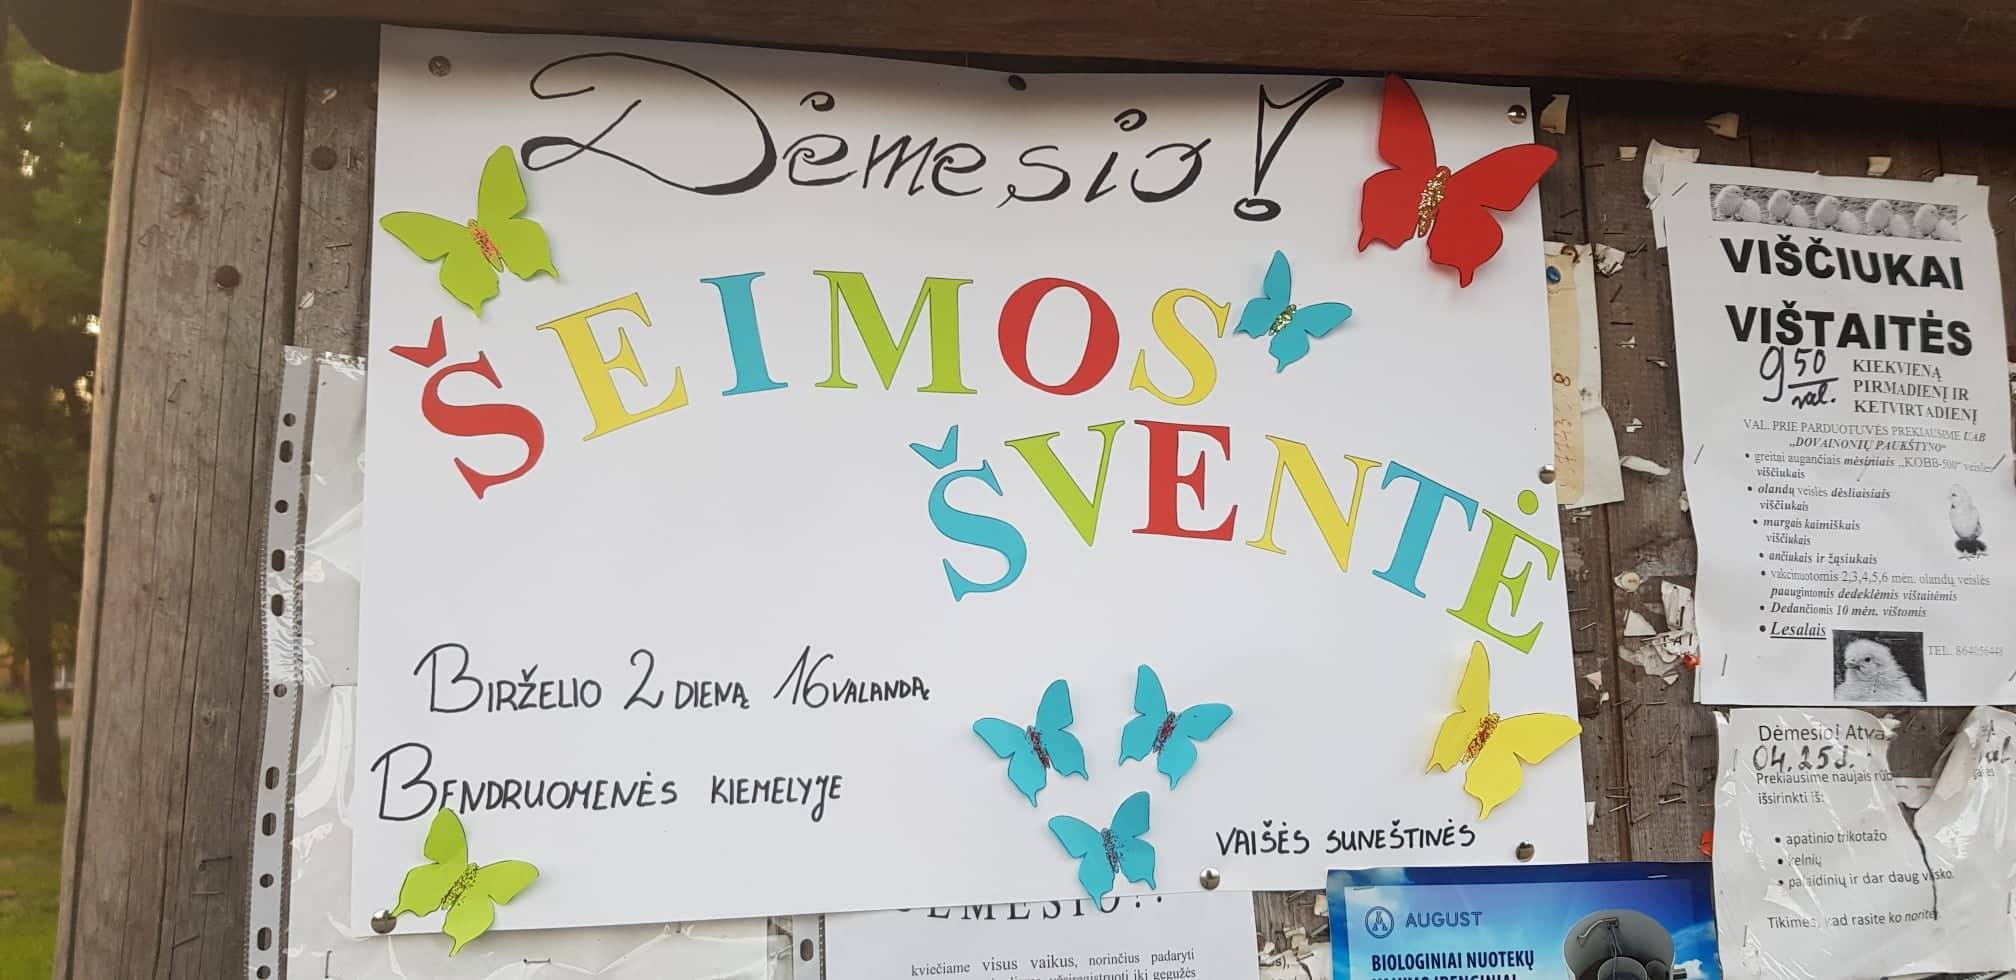 Dėmesio!
ŠEIMOS
ŠVENTĖ
BIRŽELIO 2 DIENĄ 16 VALANDĄ
BENDRUOMENĖS KIEMELYJE
VAIŠĖS SUNEŠTINĖS
VIŠČIUKAI
VIŠTAITĖS
9 50 val.
KIEKVIENĄ
PIRMADIENĮ IR
KETVIRTADIENĮ
VAL. PRIE PARDUOTUVĖS PREKIAUSIME UAB
„DOVAINONIŲ PAUKŠTYNO“
• greitai augančiais mėsiniais „KOBB-500“ veislės
viščiukais
• olandų veislės dėsliaisiais
viščiukais
• margais kaimiškais
viščiukais
• ančiukais ir žąsiukais
• vakcinuotomis 2,3,4,5,6 mėn. olandų veislės
paaugintomis dedeklėmis vištaitėmis
• Dedančiomis 10 mėn. vištomis
• Lesalais
TEL. 864056448
Dėmesio! Atva
04.25d.
Prekiausime naujais rūb
išsirinkti iš:
• apatinio trikotažo
• kelnių
• palaidinių ir dar daug visko.
Tikimės, kad rasite ko norite!
AUGUST
BIOLOGINIAI NUOTEKŲ
kviečiame visus vaikus, norinčius padaryti
iki gegužės